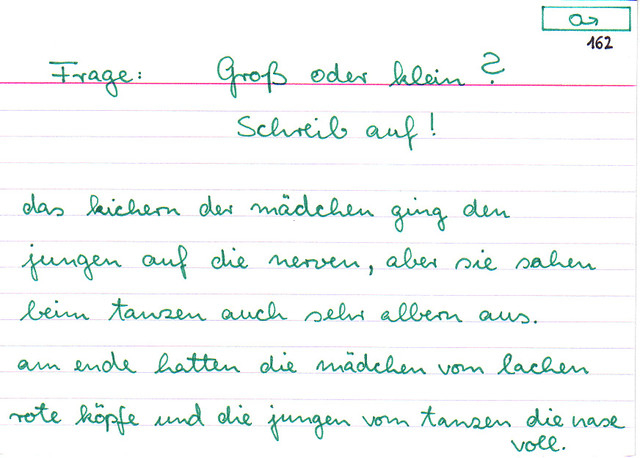 a→
162
Frage: Groß oder klein?
Schreib auf!
das kichern der mädchen ging den
jungen auf die nerven, aber sie sahen
beim tanzen auch sehr albern aus.
am ende hatten die mädchen vom lachen
rote köpfe und die jungen vom tanzen die nase
voll.